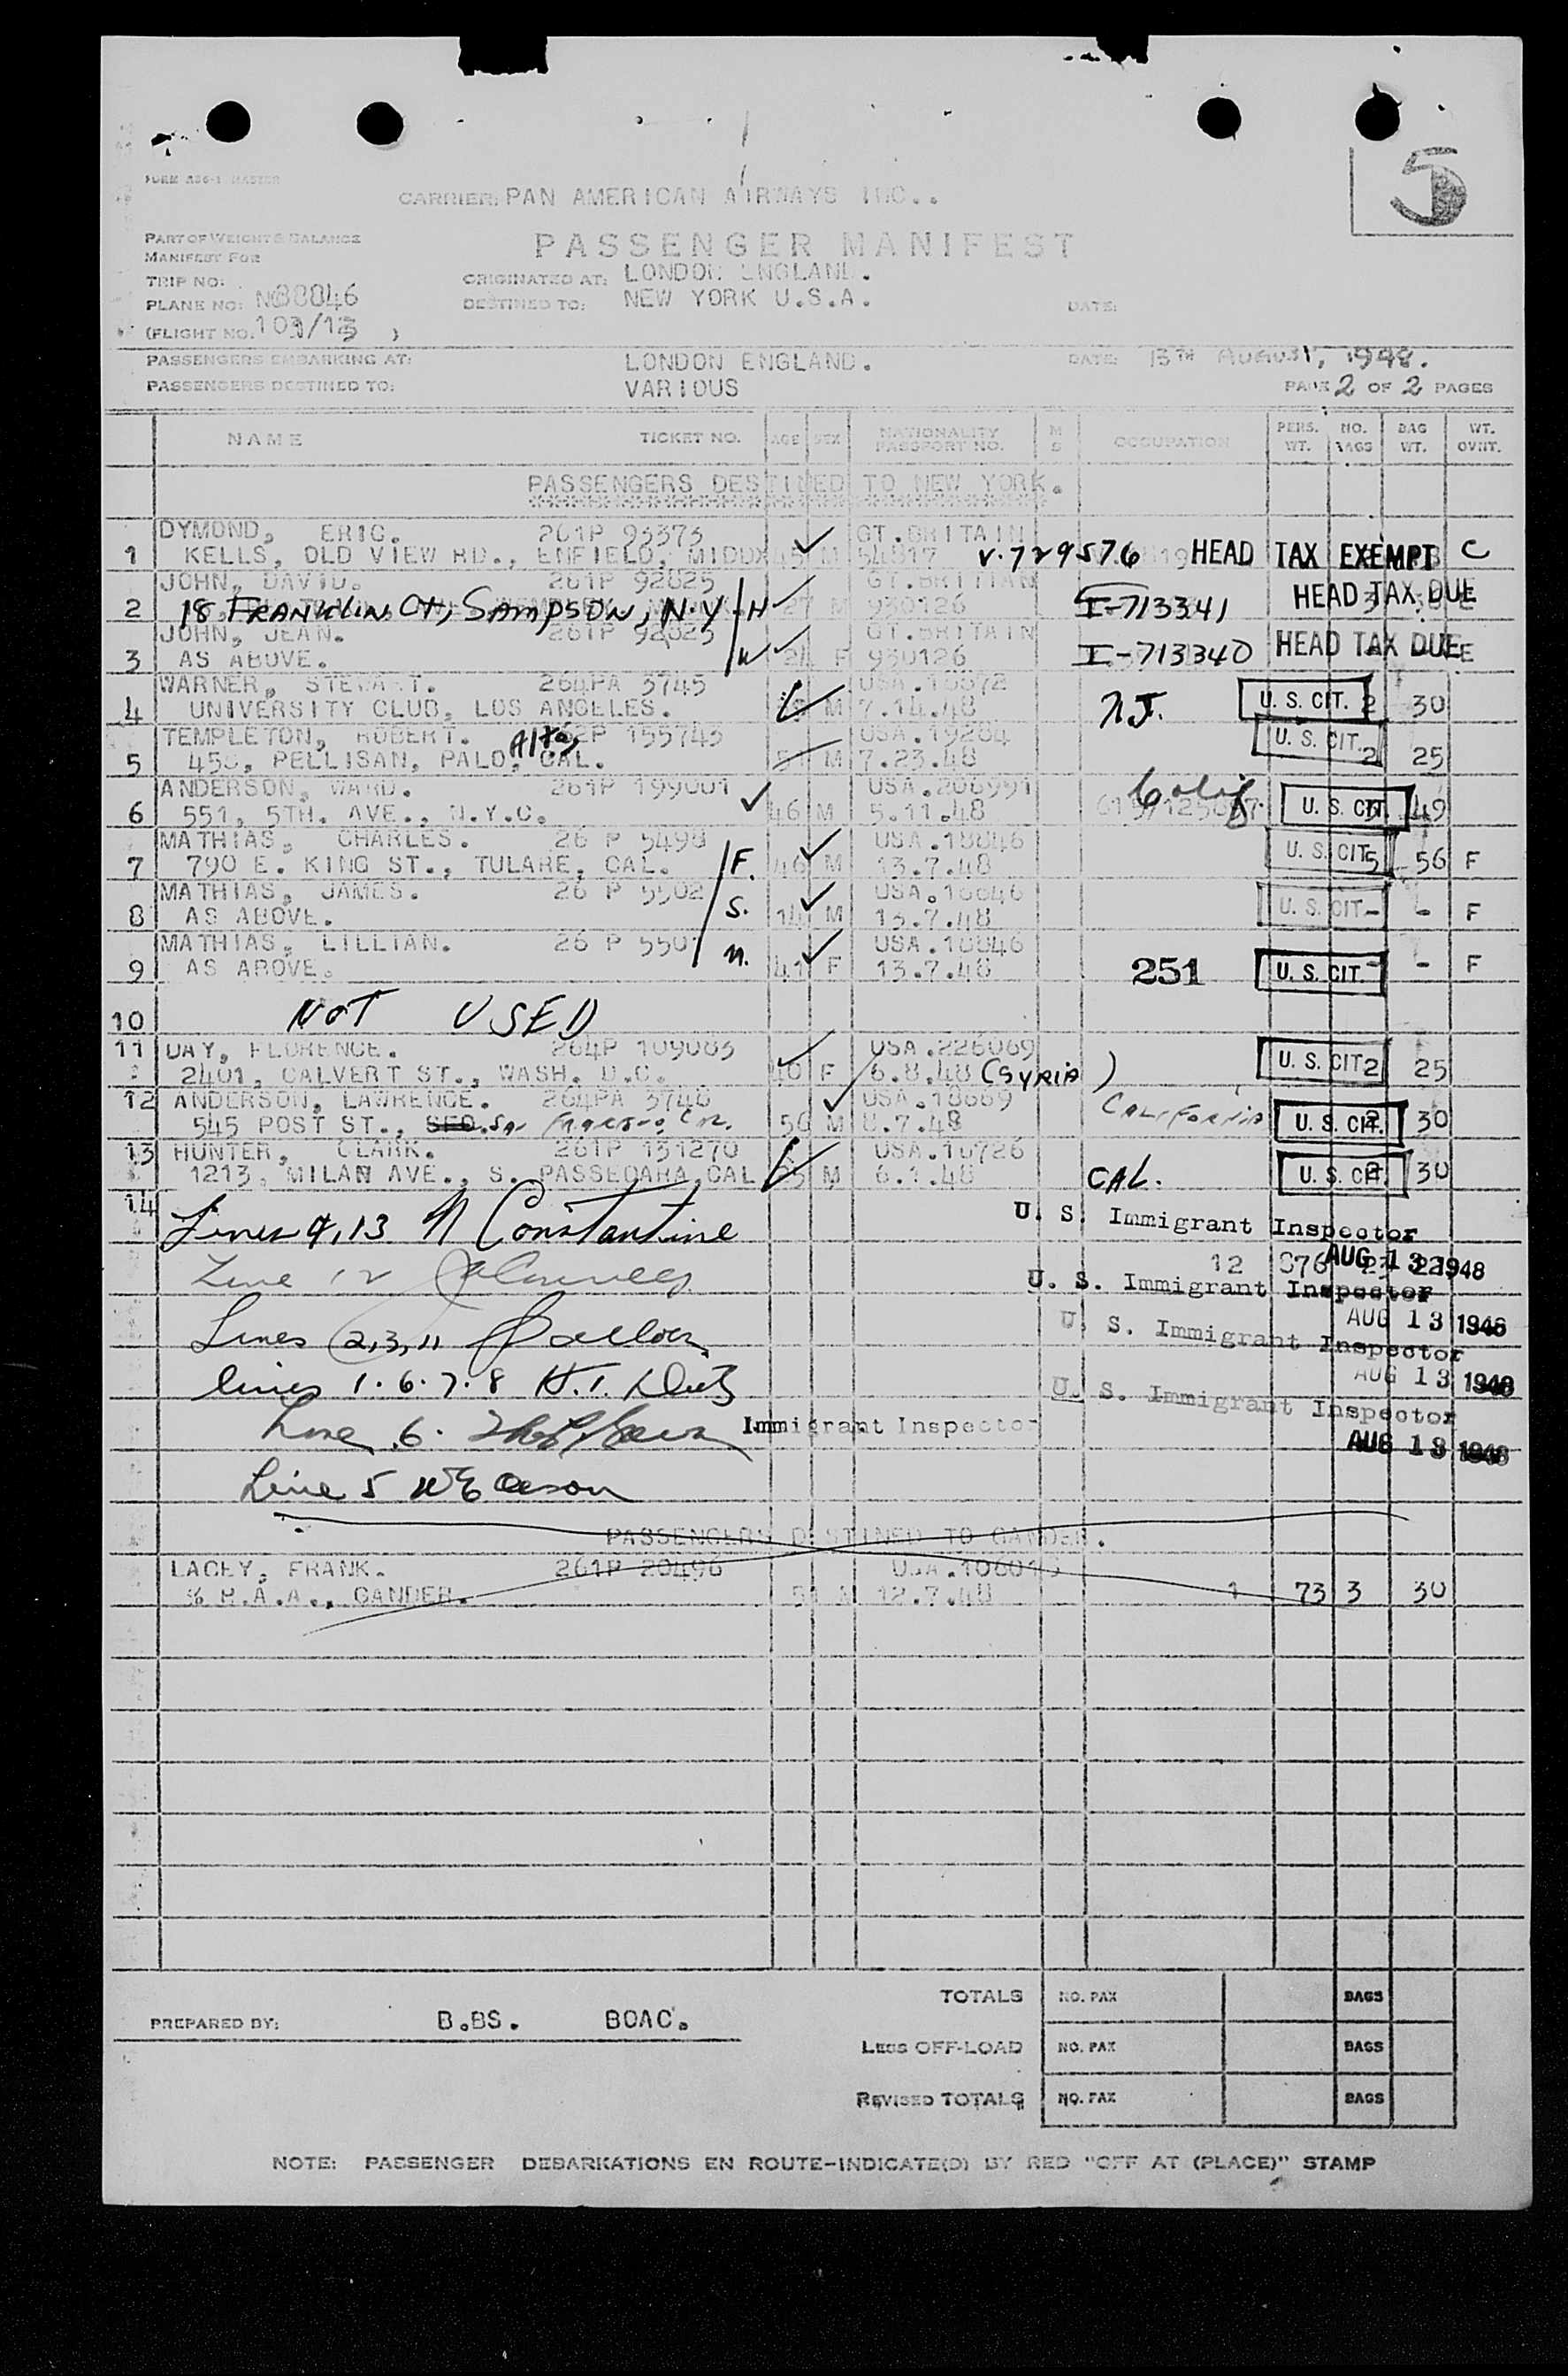 5
CARRIER: PAN AMERICAN AIRWAYS INC..
PASSENGER MANIFEST
PART OF WEIGHT & BALANCE
MANIFEST FOR
TRIP NO:
ORIGINATED AT: LONDON ENGLAND.
PLANE NO:
DESTINED TO: NEW YORK U.S.A.
DATE:
(FLIGHT NO. )
PASSENGERS EMBARKING AT: LONDON ENGLAND. DATE: 13TH AUGUST, 1948.
PASSENGERS DESTINED TO: VARIOUS PAGE 2 OF 2 PAGES
NAME TICKET NO. AGE SEX NATIONALITY PASSPORT NO. M S OCCUPATION PERS. WT. NO. BAGS BAG WT. WT. OVHT.
PASSENGERS DESTINED TO NEW YORK.
DYMOND, ERIC. 261P 93373 GT.BRITAIN
1 KELLS, OLD VIEW RD., ENFIELD, MIDDX 45 M 54817 V-729576 HEAD TAX EXEMPT C
JOHN, DAVID. 261P 92825 GT.BRITIAN
2 18 FRANKLIN Ct, SAMPSON, N.Y. H 27 M 930126 I-713341 HEAD TAX DUE
JOHN, JEAN. 261P 92825 GT.BRITAIN
3 AS ABOVE. W 24 F 930126 I-713340 HEAD TAX DUE
WARNER, STEWART. 264PA 3745 USA.
4 UNIVERSITY CLUB, LOS ANGELES. M 7.14.48 N.J. U. S. CIT. 2 30
TEMPLETON, ROBERT. 155745 USA.19204
5 PELLISAN, PALO, Alto CAL. 51 M 7.23.48 U. S. CIT. 2 25
ANDERSON, WARD. 261P 199001 USA.206991
6 551, 5TH. AVE., N.Y.C. 46 M 5.11.48 Calif. U. S. CIT. 49
MATHIAS, CHARLES. 26 P 5498 USA.18846
7 790 E. KING ST., TULARE, CAL. F. 46 M 13.7.48 U. S. CIT. 5 56 F
MATHIAS, JAMES. 26 P 5502 USA.18846
8 AS ABOVE. S. 14 M 13.7.48 U. S. CIT. - - F
MATHIAS, LILLIAN. 26 P 550 USA.18846
9 AS ABOVE. M. 41 F 13.7.48 251 U. S. CIT. - - F
10 NOT USED
11 DAY, FLORENCE. 264P 109083 USA.226069
2401, CALVERT ST., WASH. D.C. 40 F 6.8.48 (SYRIA) U. S. CIT. 2 25
12 ANDERSON, LAWRENCE. 264PA 3746 USA.18669
545 POST ST., San Francisco, Cal. 56 M 8.7.48 CALIFORNIA U. S. CIT. 2 30
13 HUNTER, CLARK. 261P 131270 USA.10726
1213, MILAN AVE., S. PASSEDARA, CAL M 6.1.48 CAL. U. S. CIT. 2 30
14 Lines 4, 13 N Constantine U. S. Immigrant Inspector
12 AUG 13 1948
Line 12 U. S. Immigrant Inspector
AUG 13 1948
Lines 2, 3, 11 U. S. Immigrant Inspector
AUG 13 1948
lines 1. 6. 7. 8 U. S. Immigrant Inspector
Line 6. Immigrant Inspector AUG 13 1948
Line 5
PASSENGERS DESTINED TO GANDER.
LACEY, FRANK. 261P 20496 USA.
% P.A.A., GANDER. 51 M 12.7.48 1 73 3 30
TOTALS NO. PAX BAGS
PREPARED BY: B.BS. BOAC.
LESS OFF-LOAD NO. PAX BAGS
REVISED TOTALS NO. PAX BAGS
NOTE: PASSENGER DEBARKATIONS EN ROUTE-INDICATE(D) BY RED "OFF AT (PLACE)" STAMP